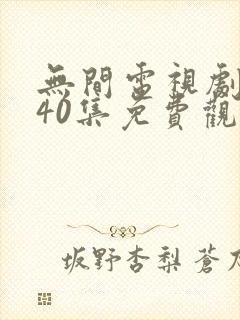 無間電視劇
40集免費觀
坂野杏梨蒼